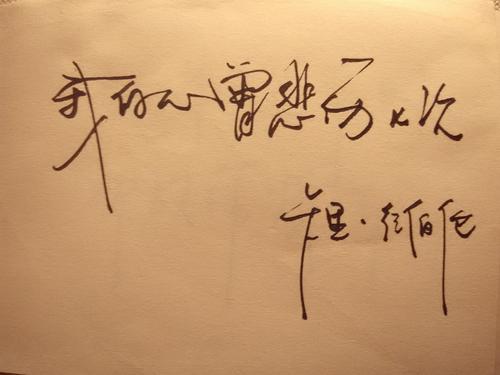 我的心曾悲伤七次
卡里·纪伯伦